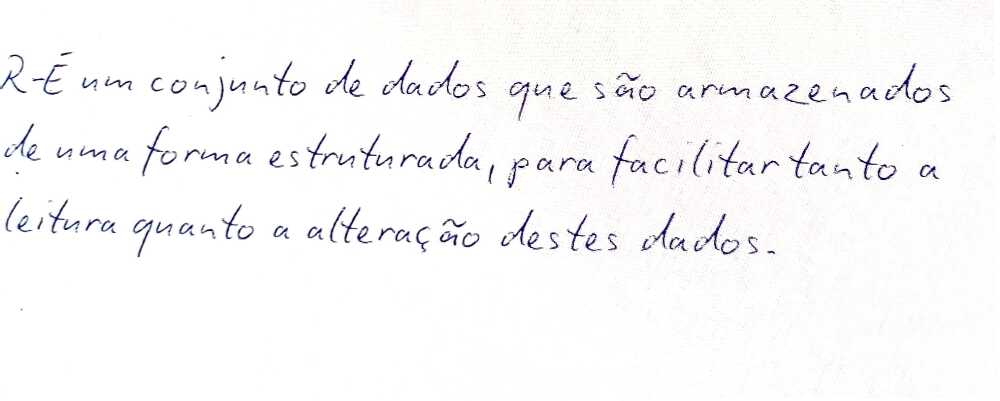 R-É um conjunto de dados que são armazenados
de uma forma estruturada, para facilitar tanto a
leitura quanto a alteração destes dados.